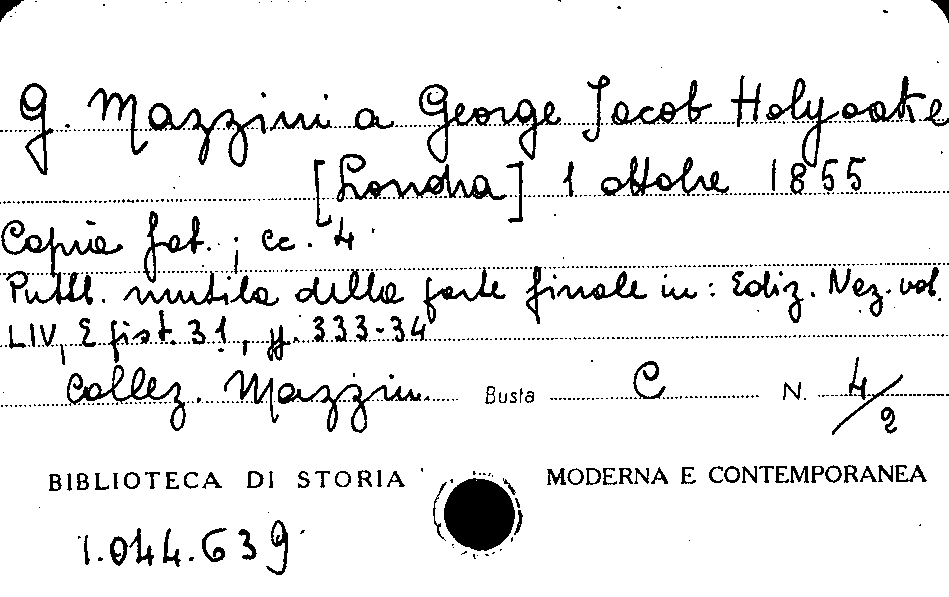 G. Mazzini a George Jacob Holyoake
[Londra] 1 ottobre 1855
Copia fot. ; cc. 4
Pubbl. mutila della parte finale in: Ediz. Naz. vol.
LIV, Epist. 31, pp. 333-34
Collez. Mazzini Busta C N. 4/2
BIBLIOTECA DI STORIA MODERNA E CONTEMPORANEA
1.044.639